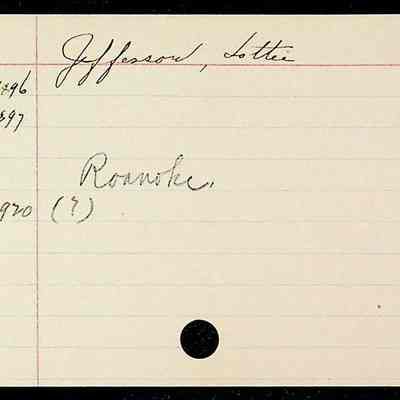 Jefferson, Lottie
896
897
Roanoke.
920 (?)